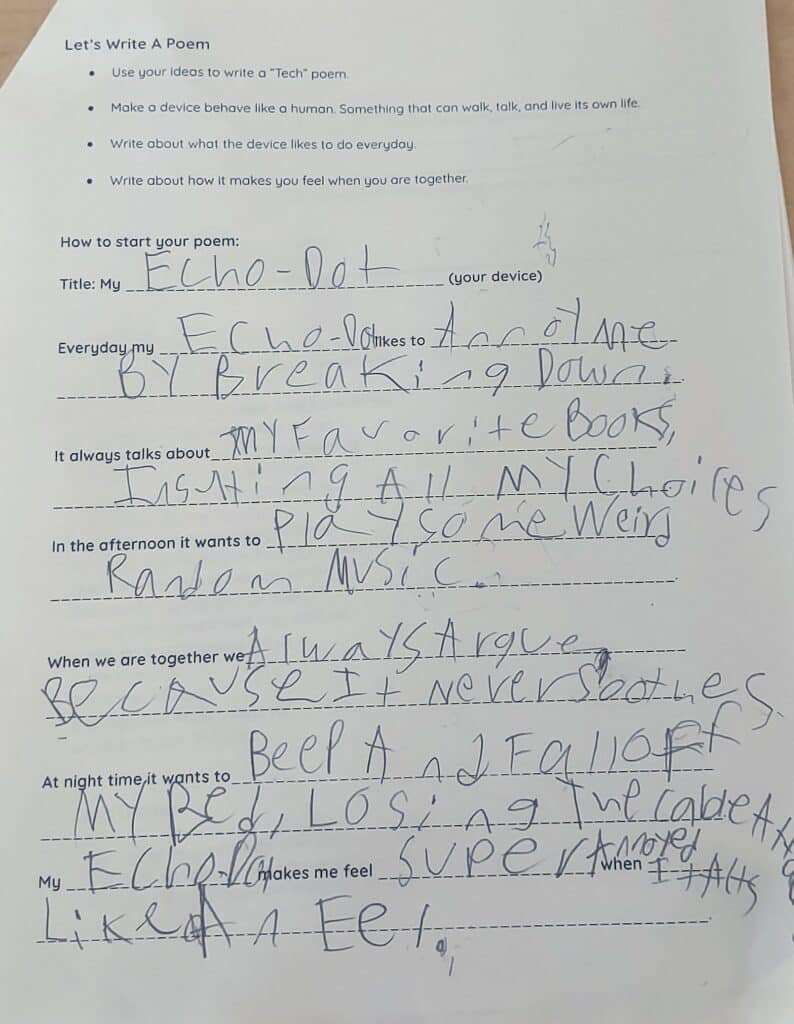 Let's Write A Poem
• Use your ideas to write a "Tech" poem.
• Make a device behave like a human. Something that can walk, talk, and live its own life.
• Write about what the device likes to do everyday.
• Write about how it makes you feel when you are together.
How to start your poem:
Title: My Echo-Dot (your device)
Everyday my Echo-Dot likes to Annoy Me
BY Breaking Down.
It always talks about MY Favorite Books,
Insulting All MY Choices
In the afternoon it wants to Play some Weird
Random Music.
When we are together we Always Argue
Because It Never Soothes.
At night time it wants to Beep And Fall off
MY Bed, Losing The cable
My Echo-Dot makes me feel super Annoyed when It Acts
Like An Eel.